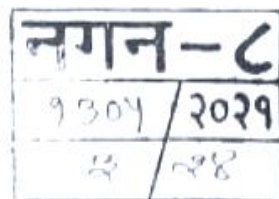 नगन - ८
१३०५ / २०२१
२ / २४